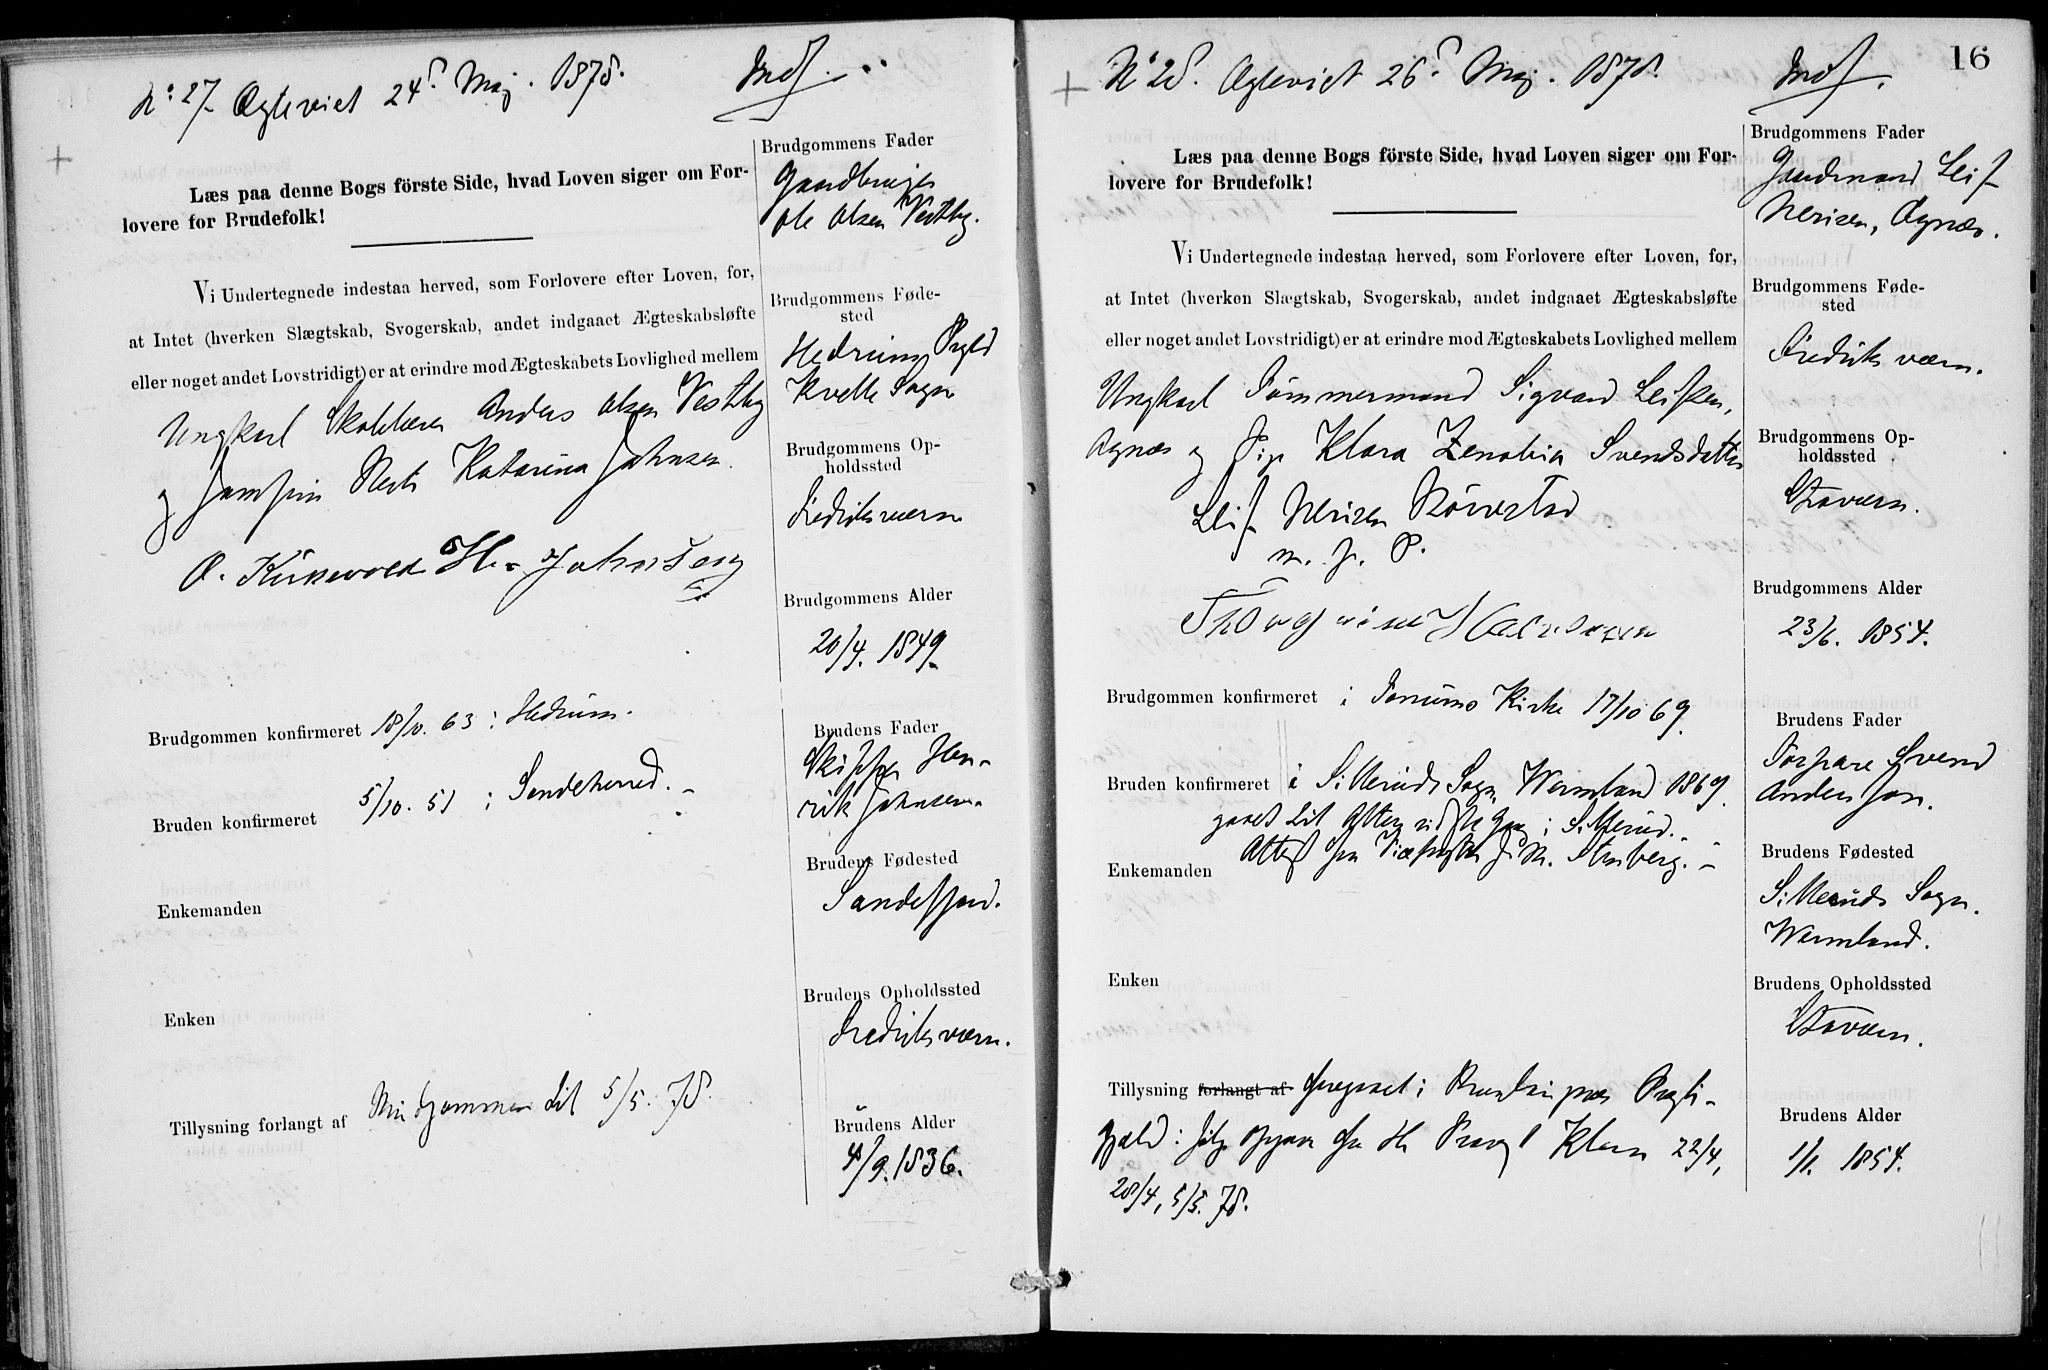 No 27 Ægteviet 24d Maj. 1878. Indf.
+
Læs paa denne Bogs förste Side, hvad Loven siger om For-
lovere for Brudefolk!
Vi Undertegnede indestaa herved, som Forlovere efter Loven, for,
at Intet (hverken Slægtskab, Svogerskab, andet indgaaet Ægteskabsløfte
eller noget andet Lovstridigt) er at erindre mod Ægteskabets Lovlighed mellem
Ungkarl Skolelærer Anders Olsen Vestby
og Jomfru Katarina Johnsen.
O. Kirkevold H. Johnsen
Brudgommen konfirmeret 18/10. 63 i Hedrum.
Bruden konfirmeret 5/10. 51 i Sandeherred.
Enkemanden
Enken
Tillysning forlangt af Brudgommen til 5/5. 78.
Brudgommens Fader
Gaardbruger
Ole Olsen Vestby.
Brudgommens Føde-
sted
Hedrums Prgld
Kvelle Sogn
Brudgommens Op-
holdssted
Fredriksværn
Brudgommens Alder
20/4. 1849
Brudens Fader
Skipper Hen-
rik Johnsen.
Brudens Fødested
Sandefjord.
Brudens Opholdssted
Fredriksværn.
Brudens Alder
4/9. 1836.
16
+
No 28. Ægteviet 26d Maj. 1878. Indf.
Læs paa denne Bogs förste Side, hvad Loven siger om For-
lovere for Brudefolk!
Vi Undertegnede indestaa herved, som Forlovere efter Loven, for,
at Intet (hverken Slægtskab, Svogerskab, andet indgaaet Ægteskabsløfte
eller noget andet Lovstridigt) er at erindre mod Ægteskabets Lovlighed mellem
Ungkarl Tømmermand Sigvard Leifsen,
Agnæs og Pige Klara Zenobia Svendsdatter
Leif Nerisen
m. f. P.
Brudgommen konfirmeret i Tanums Kirke 17/10 69.
Bruden konfirmeret i Silleruds Sogn, Wermland 1869.
gaaet til Alters i Sillerud.
Attest fra
Enkemanden
Enken
Tillysning forlangt af foregaaet i Brunlanæs Præste-
gjæld ifølge Opgave fra Hr Provst Klem 22/4,
28/4, 5/5. 78.
Brudgommens Fader
Gaardmand Leif
Nerisen, Agnæs.
Brudgommens Føde-
sted
Fredriksværn.
Brudgommens Op-
holdssted
Staværn.
Brudgommens Alder
23/6. 1854.
Brudens Fader
Torpare Svend
Andersson.
Brudens Fødested
Silleruds Sogn.
Wermland.
Brudens Opholdssted
Staværn.
Brudens Alder
1/1. 1854.